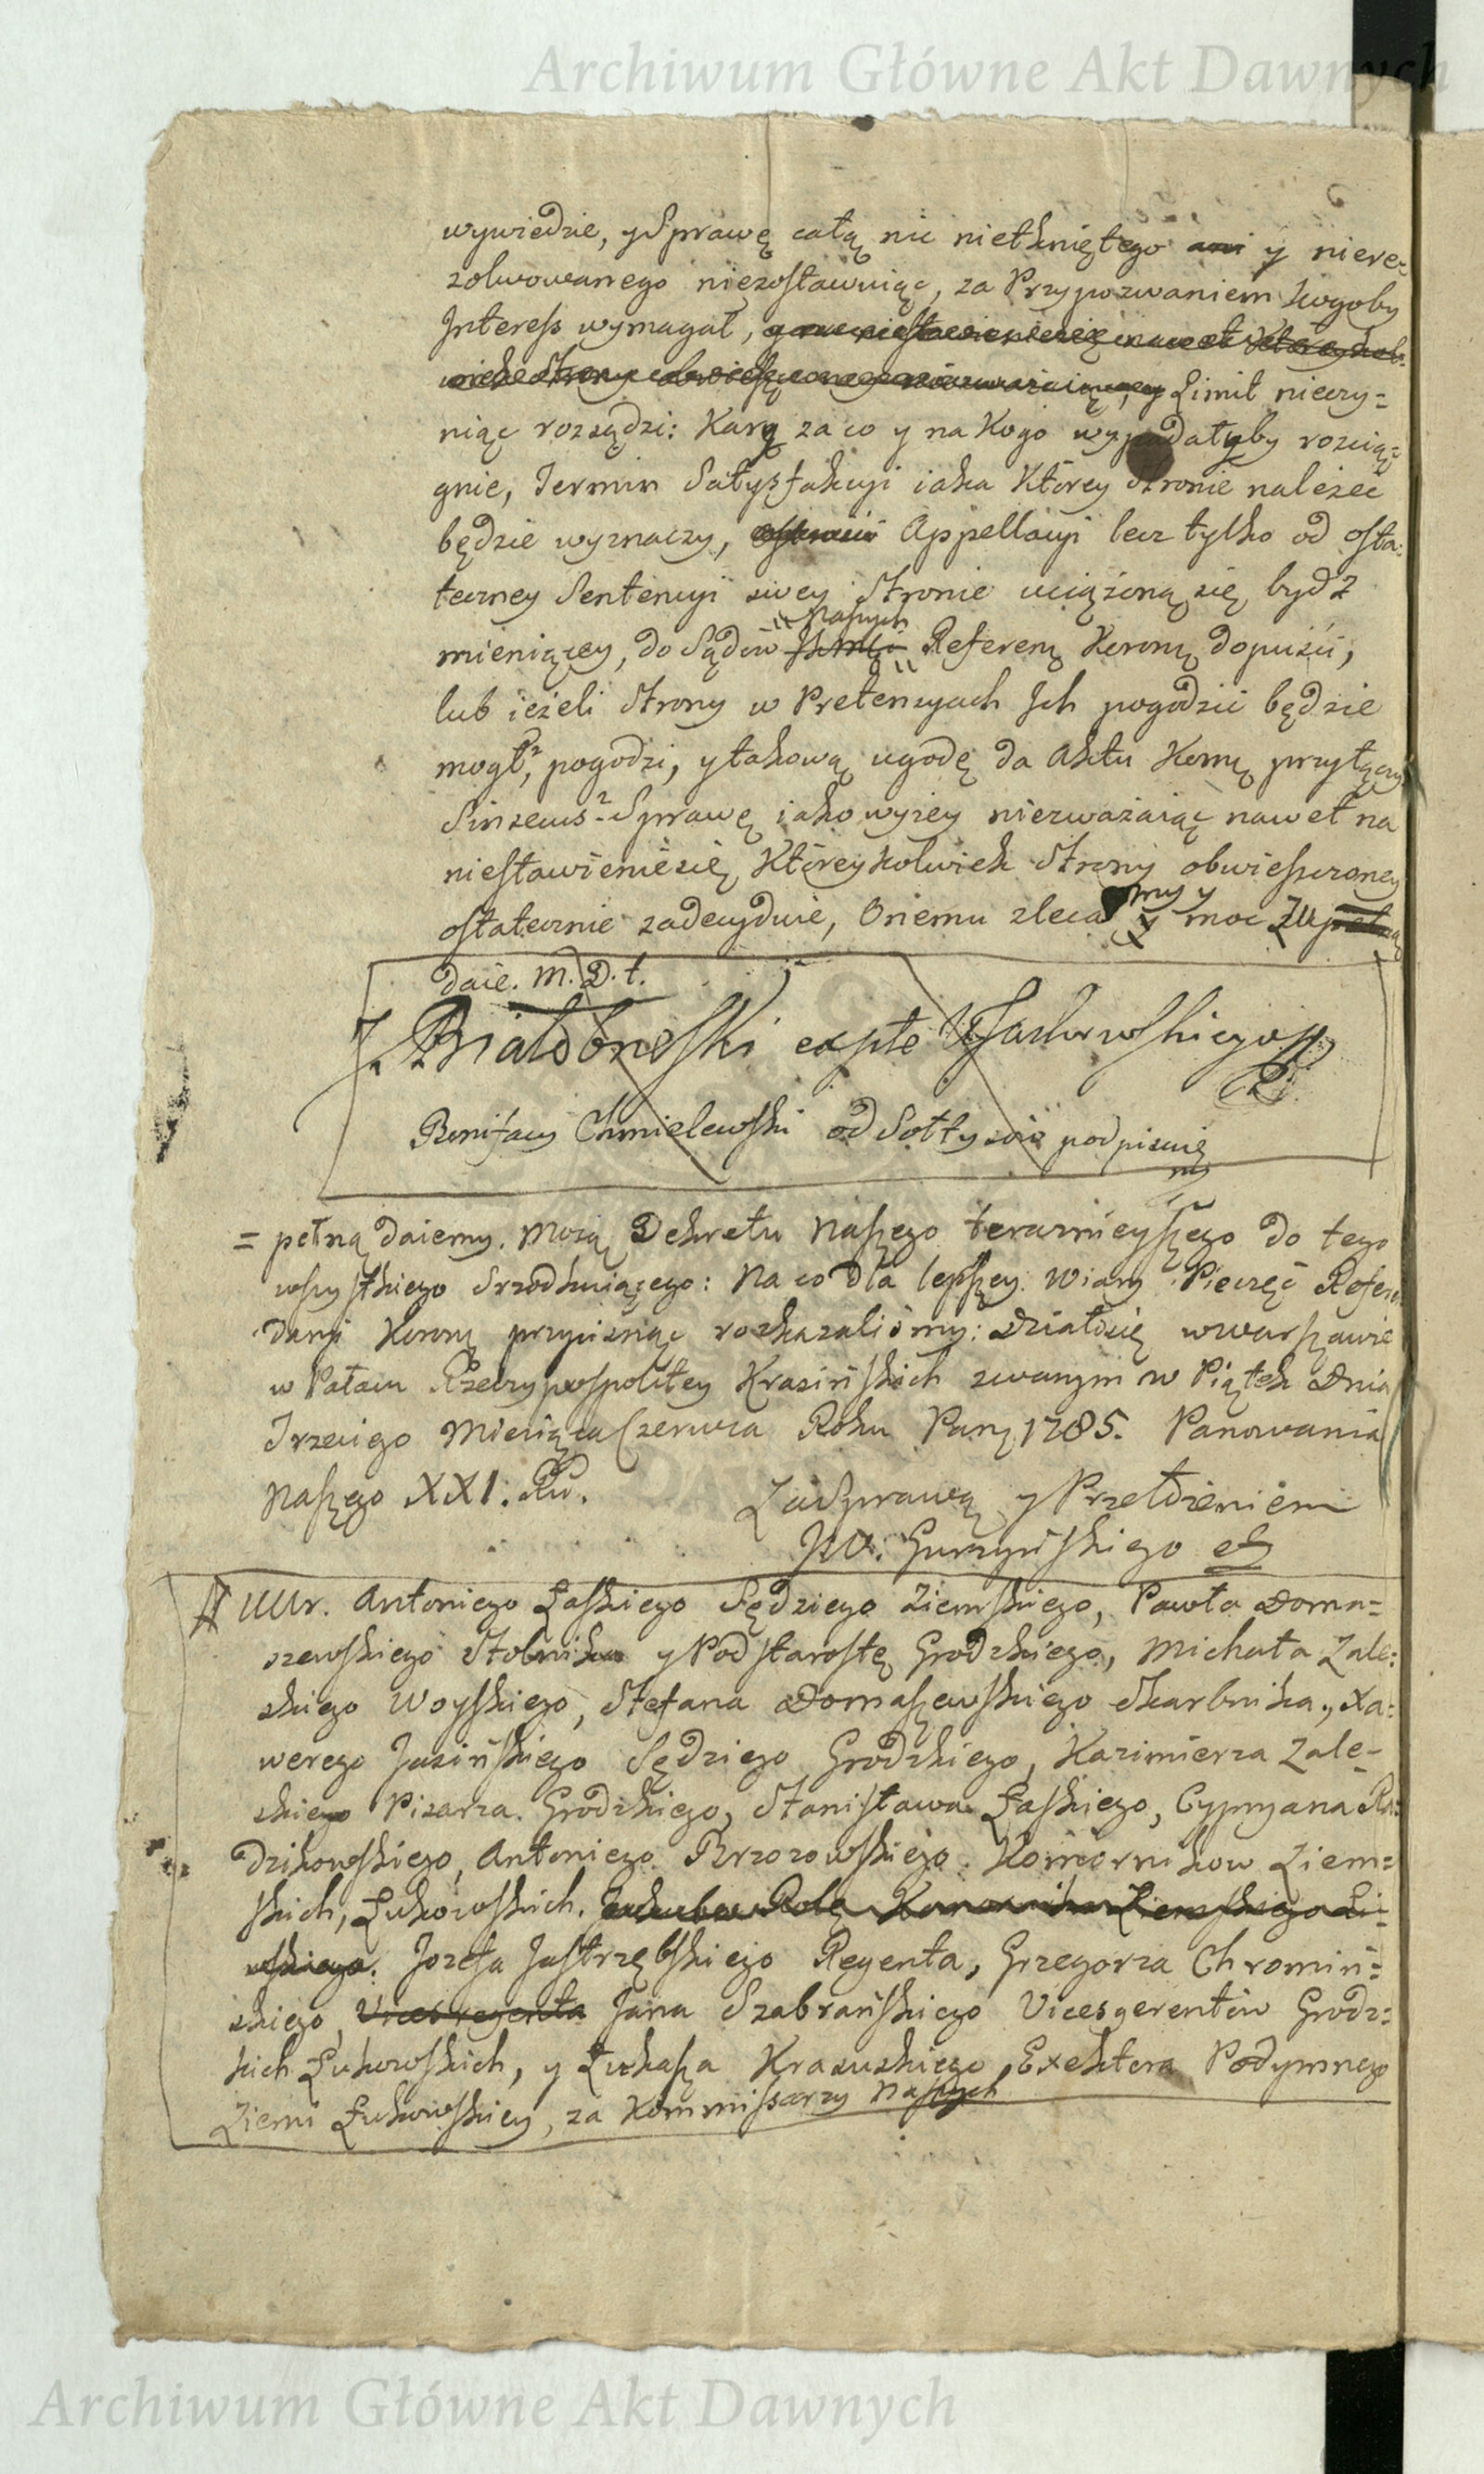 Archiwum Główne Akt Dawnych
wywiedzie, y Sprawę całą nic nietkniętego ani y niere=
zolwowanego niezostawuiąc, za Przypozwaniem kogoby
Interess wymagał, y na niestawienie się nawet ktoreykol=
wiek Strony obwieszczoney niezważaiąc, y Limit nieczy=
niąc rozsądzi: Karę za co y na Kogo wypadałyby rozcią=
gnie, Termin Satysfakcyi iaka Ktorey Stronie należec
będzie wyznaczy, Appellacyi lecz tylko od osta:
teczney Sentencyi swey Stronie uciążoną się bydz
mieniącey, do Sądow Naszych Referen Koronn dopuści,
lub ieżeli Strony w Pretensyach Ich pogodzić będzie
mogł, pogodzi, y takową ugodę do Aktu Komn przyłączy
Sprawę iako wyzey niezważaiąc nawet na
niestawienie się Ktoreykolwiek Strony obwieszczoney
ostatecznie zadecyduie, Oniemu zleca my y moc Zupełną
daie. M. D. t.
J. Białobrzeski ex pte
Bonifacy Chmielewski od Sołtysow podpisuię
mp
= pełną daiemy. Mocą Dekretu Naszego teraznieyszego do tego
wszystkiego srzodkuiącego: Na co dla lepszey Wiary Pieczęć Referen
daryi Koronn przycisnąc rozkazaliśmy: Działo się w Warszawie
w Pałacu Rzeczypospolitey Krasińskich zwanym w Piątek Dnia
Trzeciego Miesiąca Czerwca Roku Pang 1785. Panowania
Naszego XXI. Ru.
Za Sprawą y Przełożeniem
JW. Gurzyńskiego etz
# UUr. Antoniego Łaskiego Sędziego Ziemskiego, Pawła Doma=
szewskiego Stolnika y Podstarostę Grodzkiego, Michała Zale:
skiego Woyskiego, Stefana Domaszewskiego Skarbnika, Xa:
werego Jasińskiego Sędziego Grodzkiego, Kazimierza Zale=
skiego Pisarza Grodzkiego, Stanisława Łaskiego, Cypryana Ra:
dzikowskiego, Antoniego Brzozowskiego Komornikow Ziem=
skich, Łukowskich. Jakuba Rolę Komornika Ziemskiego Li=
wskiego. Jozefa Jastrzębskiego Regenta, Grzegorza Chromiń=
skiego, Vicesregenta Jana Szabrańskiego Vicesgerentow Grodz=
kich Łukowskich, y Łukasza Krasuskiego Exektora Podymnego
Ziemi Łukowskiey, za Kommissarzy Naszych
Archiwum Główne Akt Dawnych